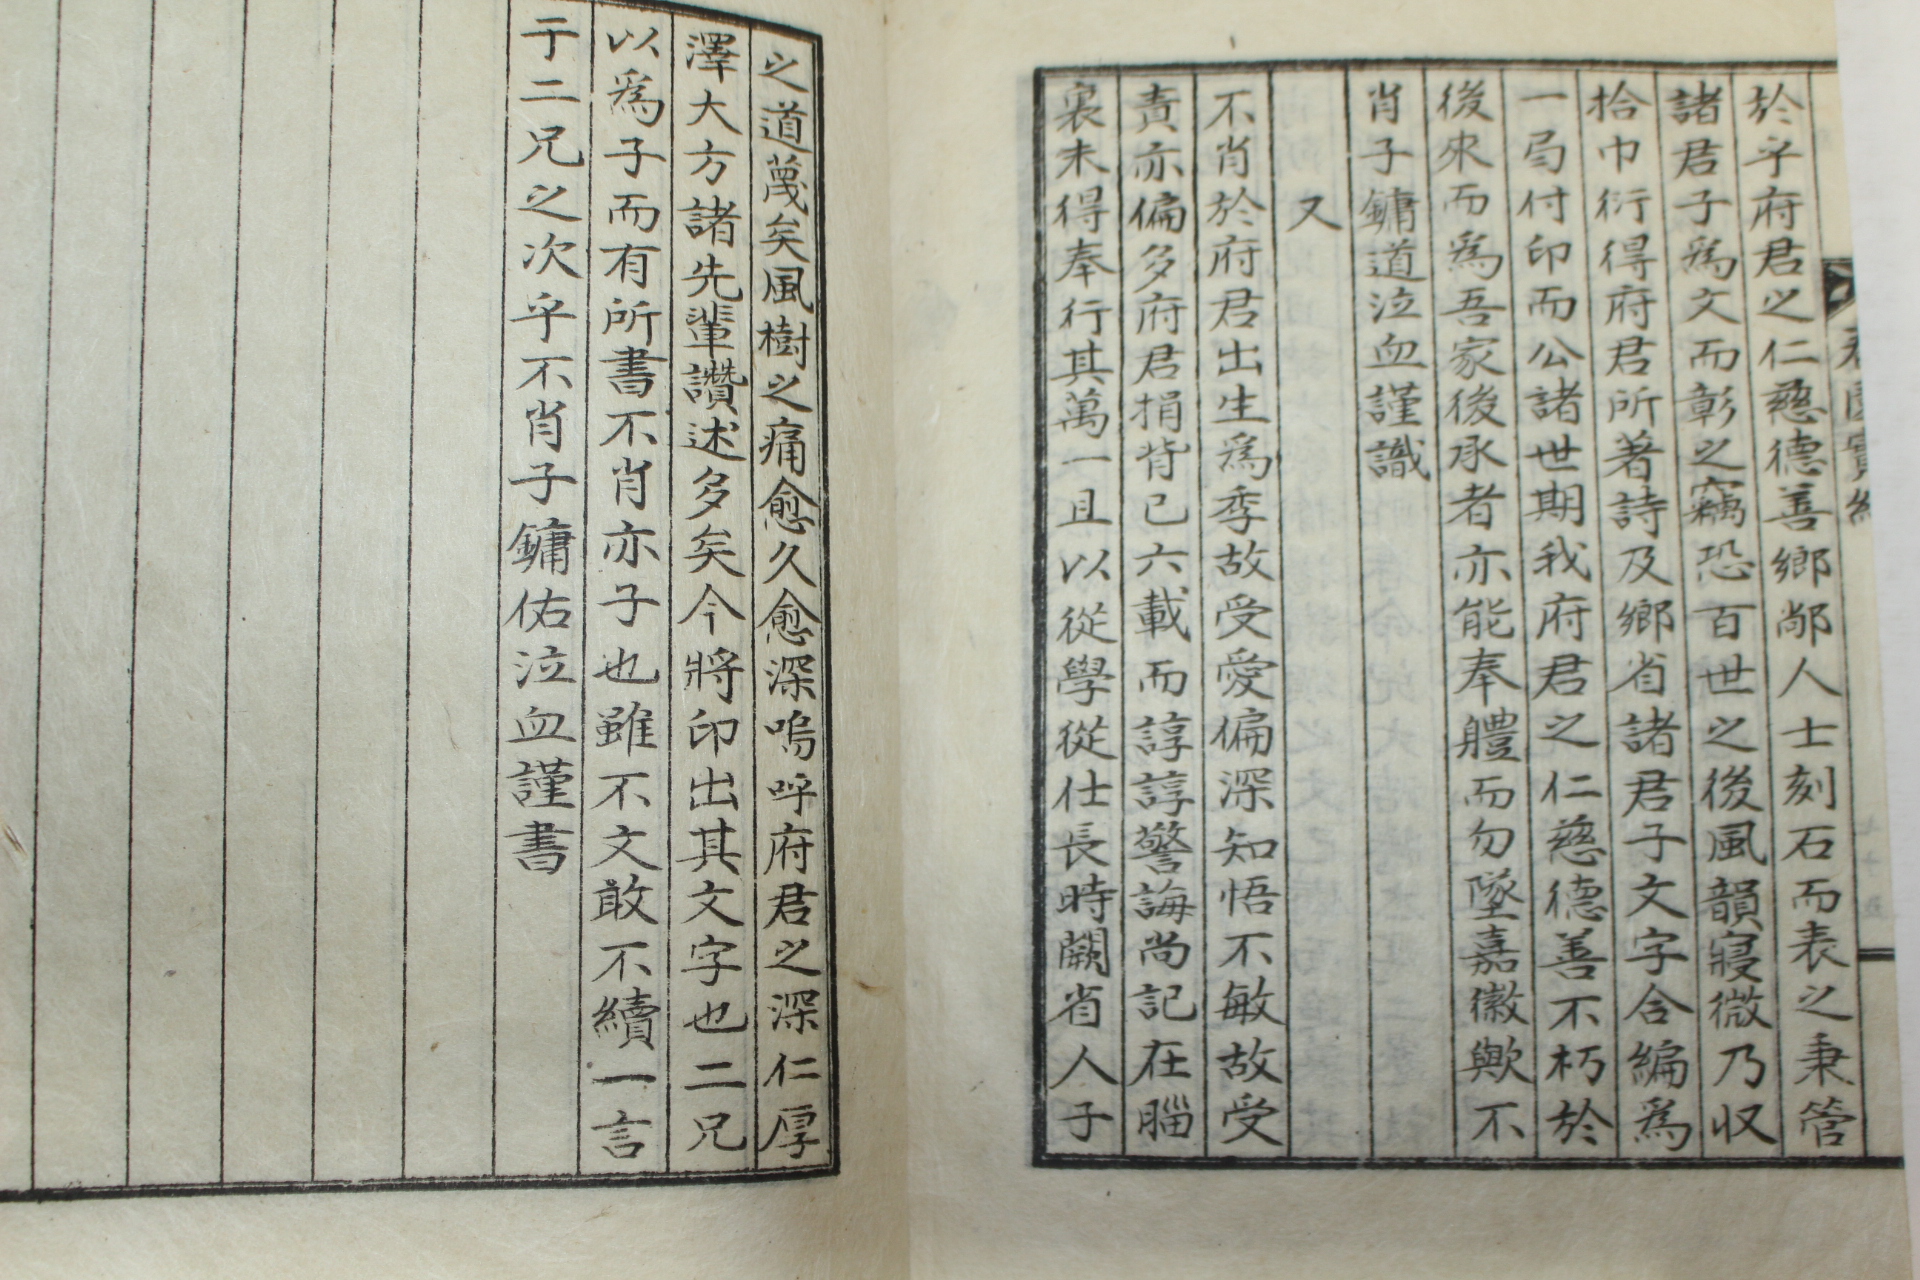 於乎府君之仁慈德善鄉鄰人士刻石而表之秉管
諸君子爲文而彰之竊恐百世之後風韻寖微乃収
拾巾衍得府君所著詩及鄉省諸君子文字合編爲
一局付印而公諸世期我府君之仁慈德善不朽於
後來而爲吾家後承者亦能奉軆而勿墜嘉徽歟不
肖子鏞道泣血謹識
又
不肖於府君出生爲季故受愛偏深知悟不敏故受
責亦偏多府君捐背已六載而諄諄警誨尚記在腦
裏未得奉行其萬一且以從學從仕長時闕省人子
之道蔑矣風樹之痛愈久愈深嗚呼府君之深仁厚
澤大方諸先輩讚述多矣今將印出其文字也二兄
以爲子而有所書不肖亦子也雖不文敢不續一言
于二兄之次乎不肖子鏞佑泣血謹書